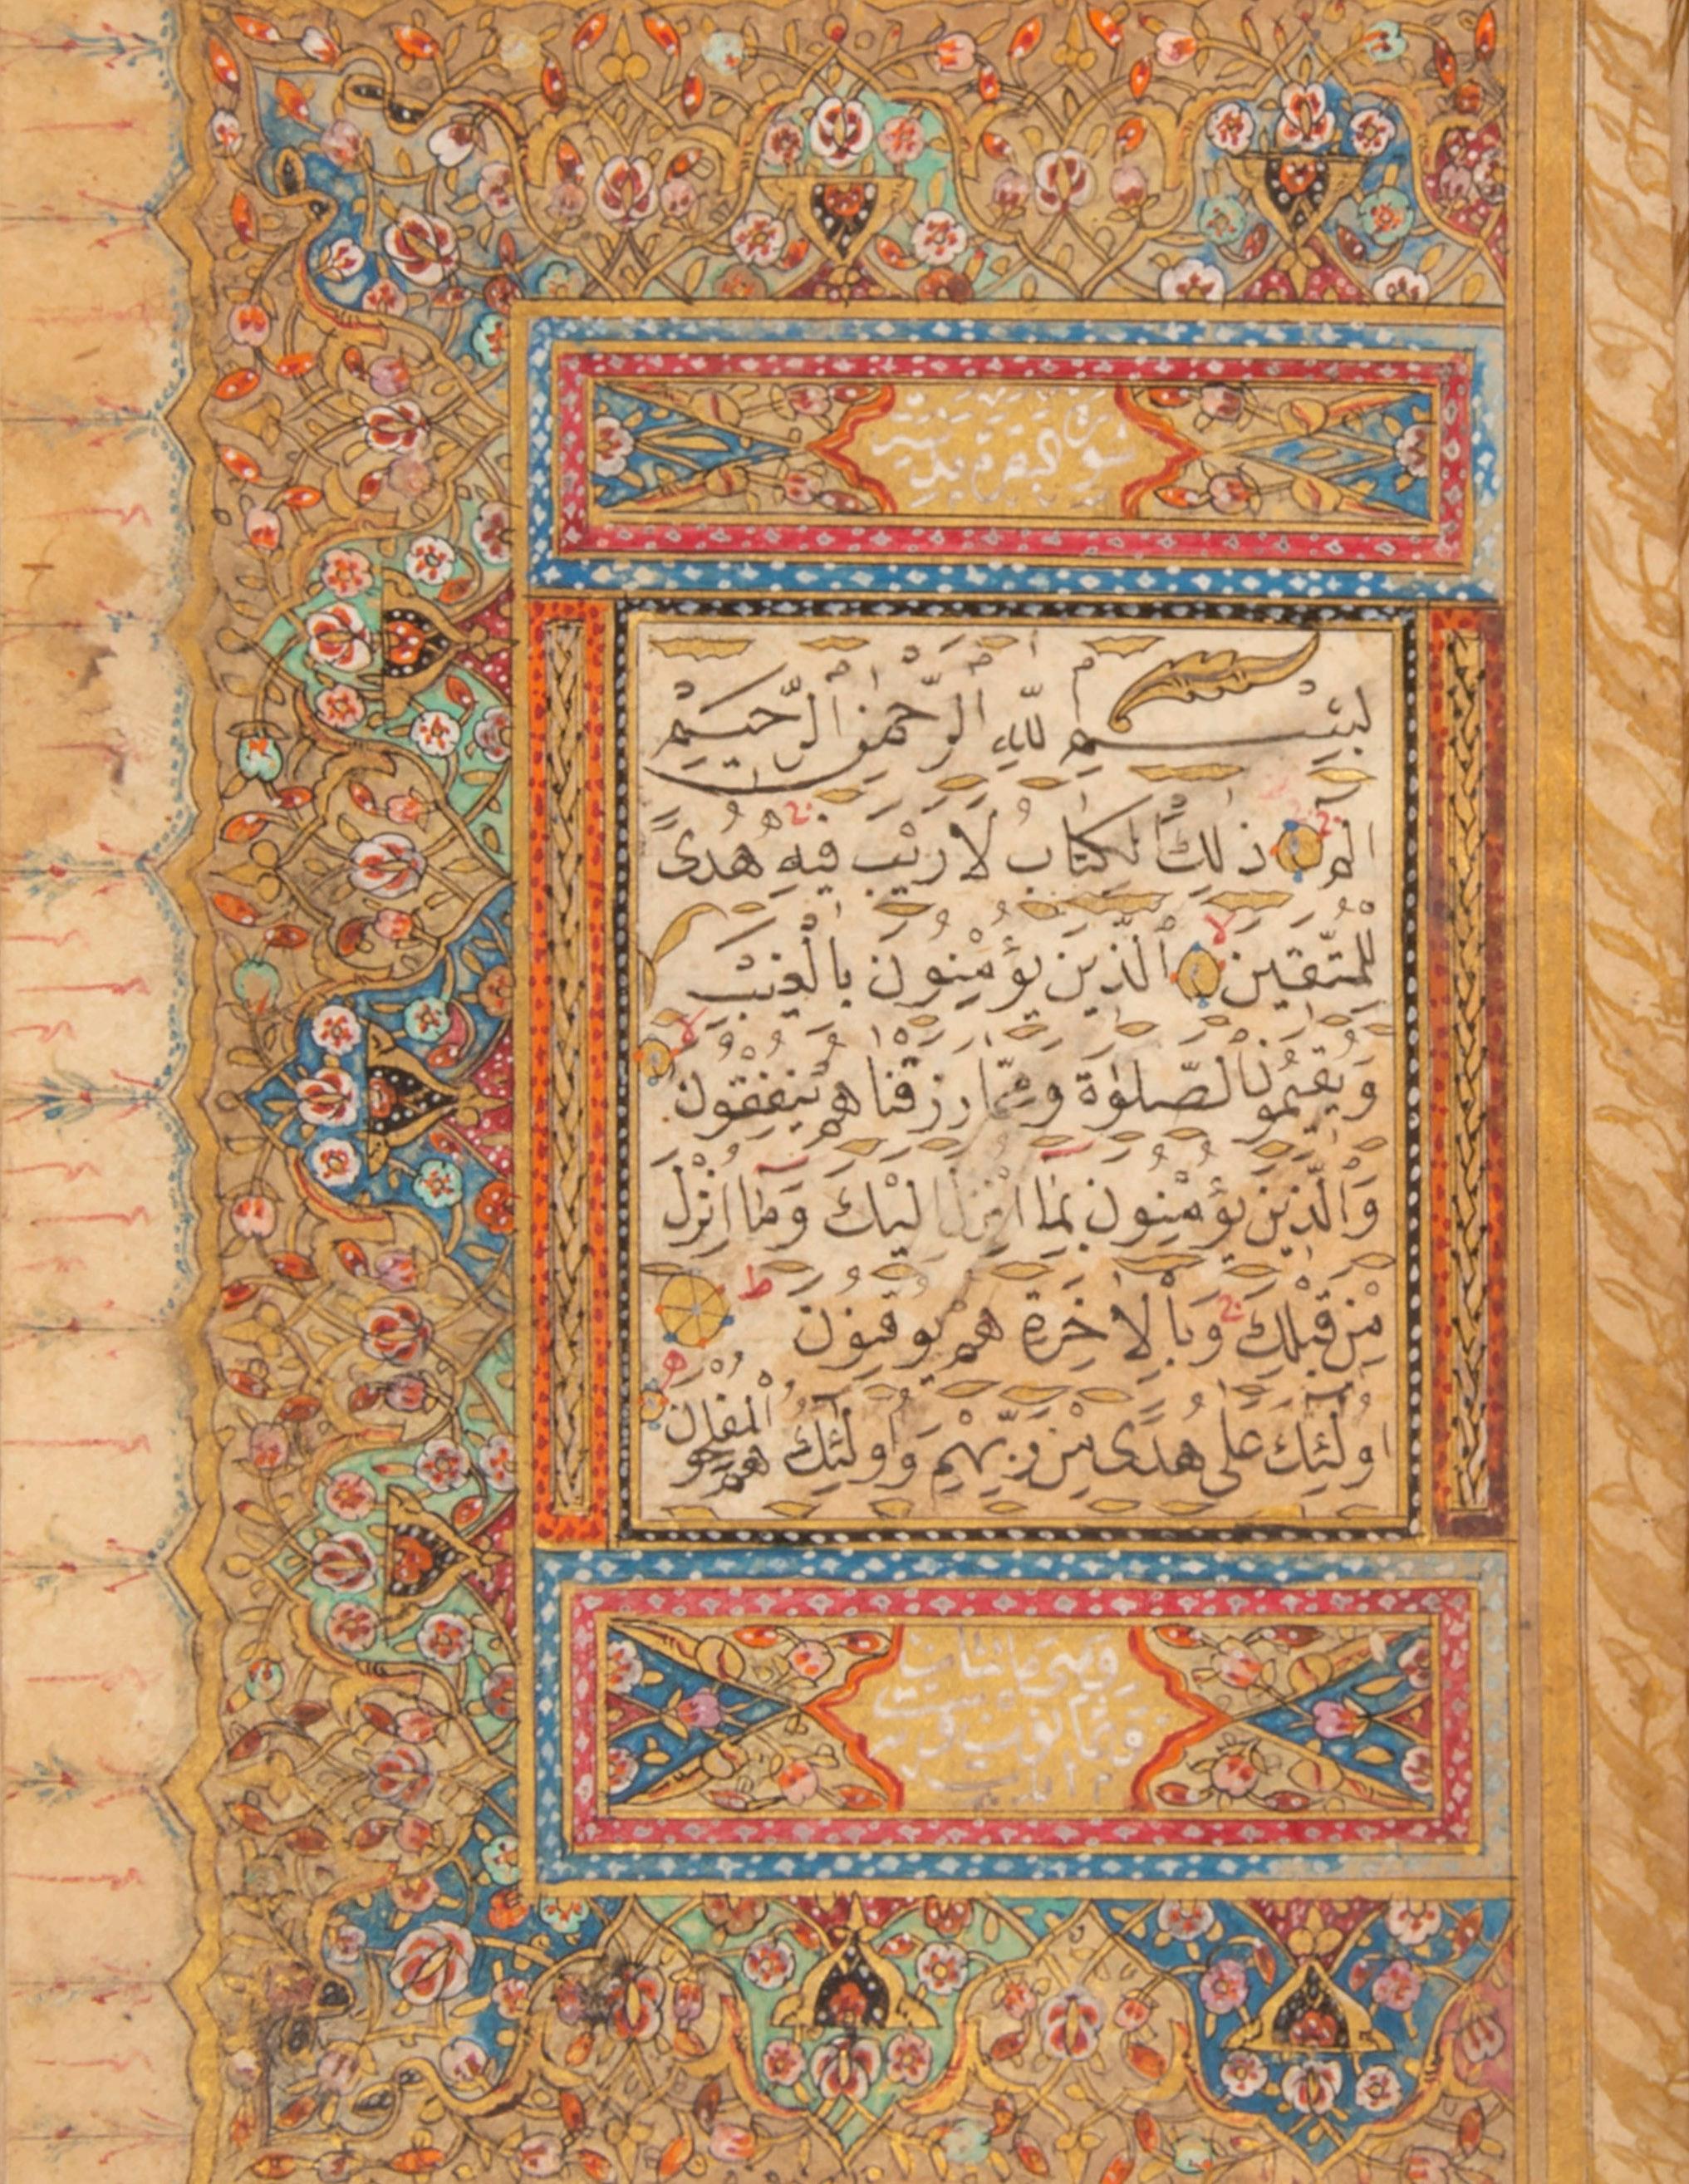 سورة البقرة مدنية
بِسْمِ اللّٰهِ الرَّحْمٰنِ الرَّحِيمِ
الم ذٰلِكَ الْكِتَابُ لَا رَيْبَ فِيهِ هُدًى
لِلْمُتَّقِينَ لا الَّذِينَ يُؤْمِنُونَ بِالْغَيْبِ
وَيُقِيمُونَ الصَّلٰوةَ وَمِمَّا رَزَقْنَاهُمْ يُنْفِقُونَ لا
وَالَّذِينَ يُؤْمِنُونَ بِمَا اُنْزِلَ اِلَيْكَ وَمَا اُنْزِلَ
مِنْ قَبْلِكَ وَبِالْاٰخِرَةِ هُمْ يُوقِنُونَ ط
اُولٰئِكَ عَلٰى هُدًى مِنْ رَبِّهِمْ وَاُولٰئِكَ هُمُ الْمُفْلِحُونَ
وهي مائتان
وثمانون